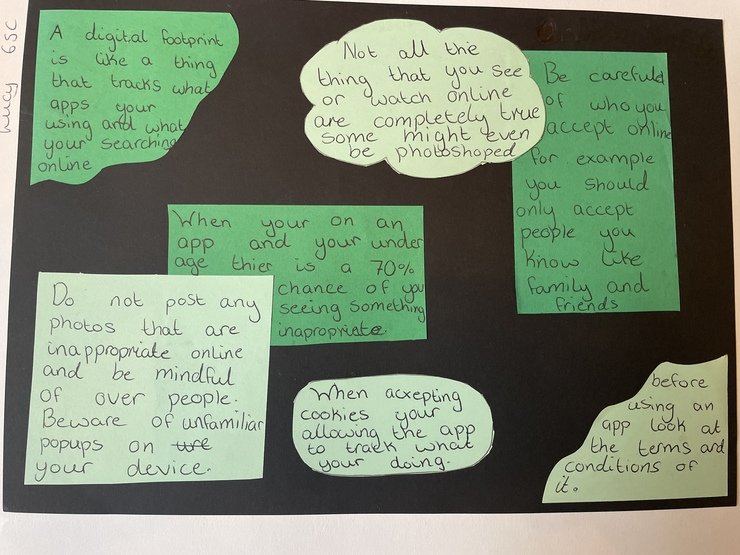 Lucy 6SC
A digital footprint
is like a thing
that tracks what
apps your
using and what
your searching
online
Not all the
thing that you see
or watch online
are completely true
some might even
be photoshoped
Be carefuld
of who you
accept online
for example
you should
only accept
people you
know like
family and
friends
When your on an
app and your under
age thier is a 70%
chance of you
seeing something
inapropriate.
Do not post any
photos that are
inappropriate online
and be mindful
of over people.
Beware of unfamiliar
popups on
your device.
When acxepting
cookies your
allowing the app
to track what
your doing.
before
using an
app look at
the terms and
conditions of
it.